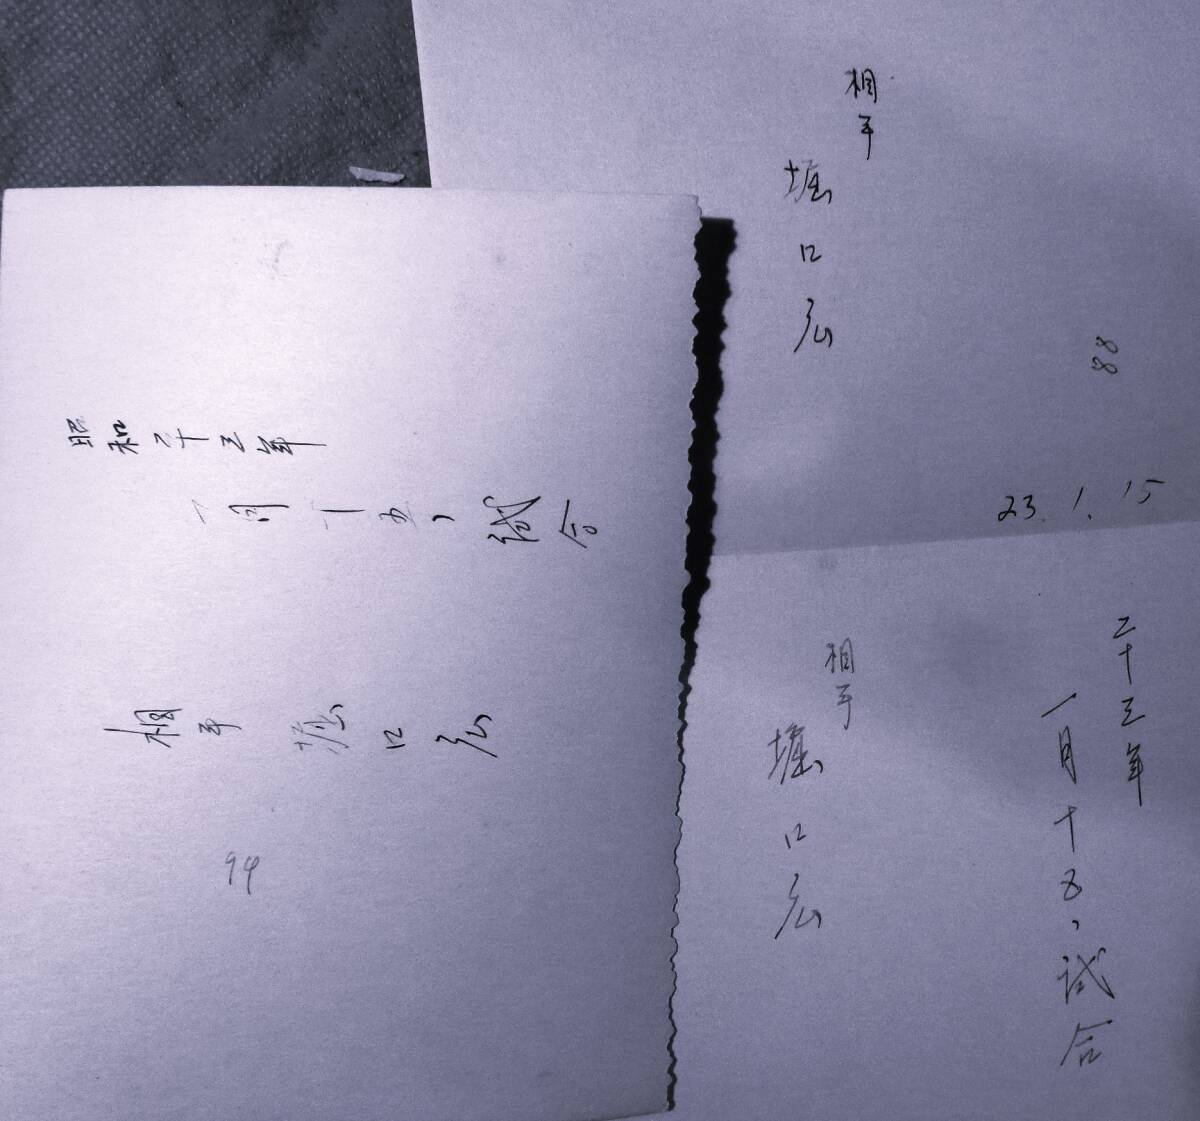 相手
堀口宏
88
23.1.15
二十三年
一月十五、試合
相手
堀口宏
昭和二十三年
一月十五、試合
相手 堀口宏
94